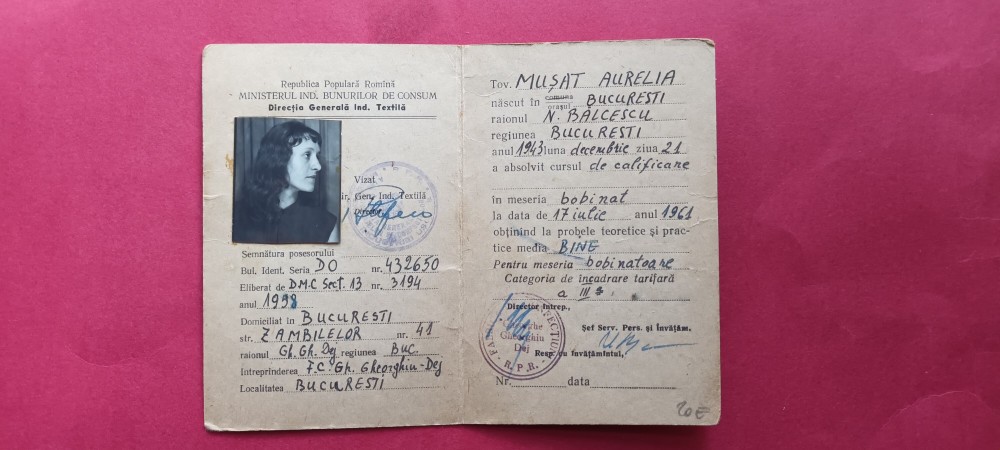 Republica Populară Romînă
MINISTERUL IND. BUNURILOR DE CONSUM
Direcția Generală Ind. Textilă
Vizat
Dir. Gen. Ind. Textilă
Director
Semnătura posesorului
Bul. Ident. Seria DO nr. 432650
Eliberat de D.M.C Sect. 13 nr. 3194
anul 1998
Domiciliat în BUCURESTI
str. ZAMBILELOR nr. 41
raionul Gh. Gh. Dej regiunea BUC.
Întreprinderea F.C. Gh. Gheorghiu-Dej
Localitatea BUCURESTI
Tov. MUȘAT AURELIA
născut în comuna orașul BUCURESTI
raionul N. BĂLCESCU
regiunea BUCURESTI
anul 1943 luna decembrie ziua 21
a absolvit cursul de calificare
în meseria bobinat
la data de 17 iulie anul 1961
obținînd la probele teoretice și prac-
tice media BINE
Pentru meseria bobinatoare
Categoria de încadrare tarifară
a III
Director Întrep.,
Gheorghe
Gheorghiu
Dej
R.P.R.
Șef Serv. Pers. și Învățăm.
Resp. cu învățămîntul,
Nr. data
20E